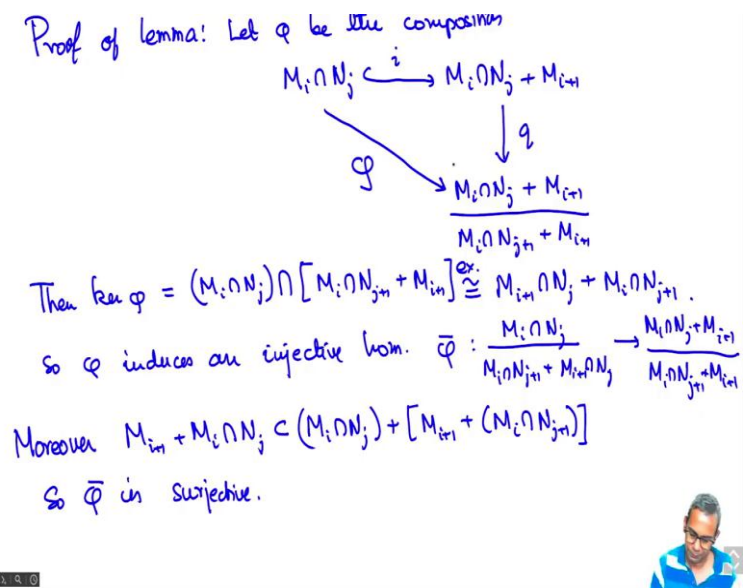 Proof of lemma: Let φ be the composition
M_i ∩ N_j ↪ M_i ∩ N_j + M_{i+1}
i
q
φ
M_i ∩ N_j + M_{i+1}
M_i ∩ N_{j+1} + M_{i+1}
Then ker φ = (M_i ∩ N_j) ∩ [M_i ∩ N_{j+1} + M_{i+1}] ≅^{ex.} M_{i+1} ∩ N_j + M_i ∩ N_{j+1}.
So φ induces an injective hom. φ̄ : (M_i ∩ N_j)/(M_i ∩ N_{j+1} + M_{i+1} ∩ N_j) → (M_i ∩ N_j + M_{i+1})/(M_i ∩ N_{j+1} + M_{i+1})
Moreover M_{i+1} + M_i ∩ N_j ⊂ (M_i ∩ N_j) + [M_{i+1} + (M_i ∩ N_{j+1})]
So φ̄ is surjective.